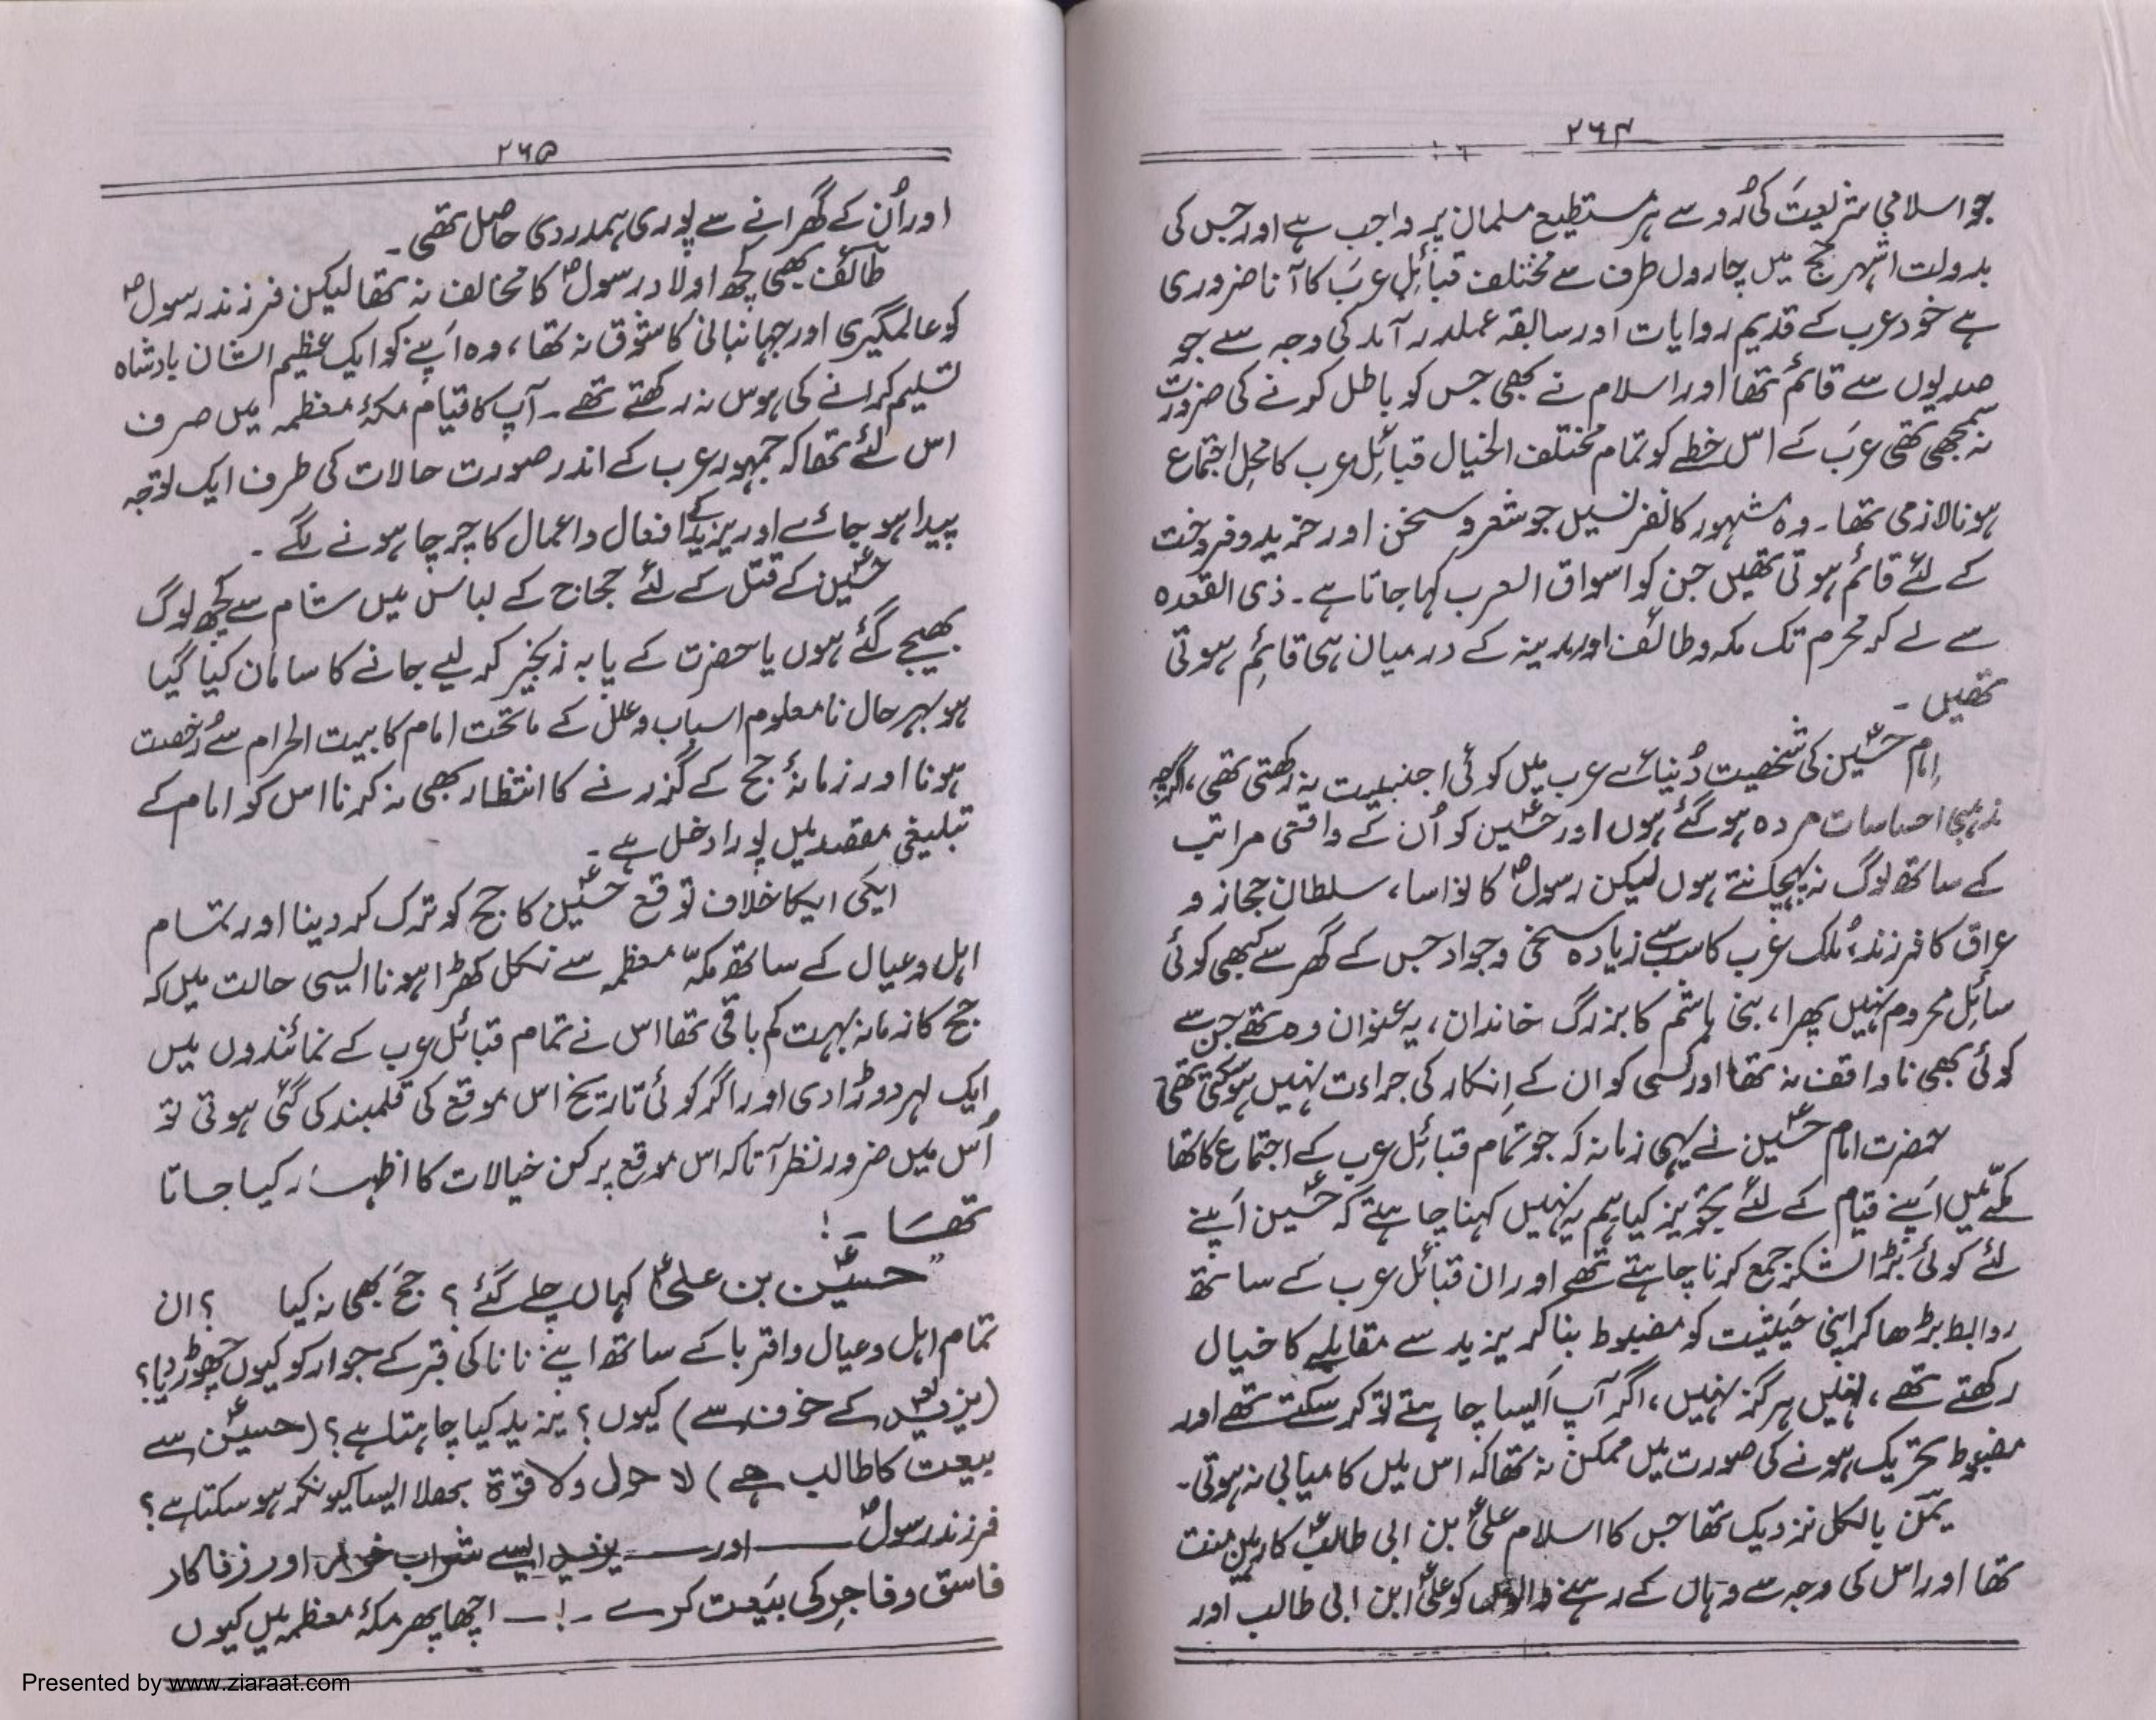 ۲۶۴
جو اسلامی شریعت کی رُو سے ہر مستطیع مسلمان پر واجب ہے اور جس کی
بدولت اشہر حج میں چاروں طرف سے مختلف قبائلِ عرب کا آنا ضروری
ہے خود عرب کے قدیم روایات اور سابقہ عملدرآمد کی وجہ سے جو
صدیوں سے قائم تھا اور اسلام نے بھی جس کو باطل کرنے کی ضرورت
نہ سمجھی تھی عرب کے اس خطے کو تمام مختلف الخیال قبائلِ عرب کا محلِ اجتماع
ہونا لازمی تھا۔ وہ مشہور کانفرنسیں جو شعر و سخن اور خرید و فروخت
کے لئے قائم ہوتی تھیں جن کو اسواق العرب کہا جاتا ہے۔ ذی القعدہ
سے لے کر محرم تک مکہ و طائف اور مدینہ کے درمیان ہی قائم ہوتی
تھیں۔
امام حسینؑ کی شخصیت دُنیائے عرب میں کوئی اجنبیت نہ رکھتی تھی، اگرچہ
مذہبی احساسات مردہ ہو گئے ہوں اور حسینؑ کو اُن کے واقعی مراتب
کے ساتھ لوگ نہ پہچانتے ہوں لیکن رسولؐ کا نواسا، سلطان حجاز و
عراق کا فرزند، مُلک عرب کا سب سے زیادہ سخی و جواد جس کے گھر سے کبھی کوئی
سائل محروم نہیں پھرا، بنی ہاشم کا بزرگ خاندان، یہ عنوان وہ تھے جن سے
کوئی بھی ناواقف نہ تھا اور کسی کو ان کے اِنکار کی جراءت نہیں ہوسکتی تھی
حضرت امام حسینؑ نے یہی زمانہ کہ جو تمام قبائلِ عرب کے اجتماع کا تھا
مکّے میں اپنے قیام کے لئے تجویز کیا ہم یہ نہیں کہنا چاہتے کہ حسینؑ اپنے
لئے کوئی بڑا لشکر جمع کرنا چاہتے تھے اور ان قبائل عرب کے ساتھ
روابط بڑھا کر اپنی حیثیت کو مضبوط بنا کر یزید سے مقابلے کا خیال
رکھتے تھے، نہیں ہرگز نہیں، اگر آپ ایسا چاہتے تو کر سکتے تھے اور
مضبوط تحریک ہونے کی صورت میں ممکن نہ تھا کہ اس میں کامیابی نہ ہوتی۔
یمن بالکل نزدیک تھا جس کا اسلام علیؑ بن ابی طالبؑ کا رہین منت
تھا اور اس کی وجہ سے وہاں کے رہنے والوں کو علیؑ ابن ابی طالب اور
۲۶۵
اور اُن کے گھرانے سے پوری ہمدردی حاصل تھی۔
طائف بھی کچھ اولاد رسولؐ کا مخالف نہ تھا لیکن فرزند رسولؐ
کو عالمگیری اور جہانبانی کا شوق نہ تھا، وہ اپنے کو ایک عظیم الشان بادشاہ
تسلیم کرانے کی ہوس نہ رکھتے تھے۔ آپ کا قیام مکۂ معظمہ میں صرف
اس لئے تھا کہ جمہور عرب کے اندر صورت حالات کی طرف ایک توجہ
پیدا ہو جائے اور یزید کے افعال و اعمال کا چرچا ہونے لگے۔
حسینؑ کے قتل کے لئے حجاج کے لباس میں شام سے کچھ لوگ
بھیجے گئے ہوں یا حضرت کے پابہ زنجیر کر لیے جانے کا سامان کیا گیا
ہو بہر حال نامعلوم اسباب و علل کے ماتحت امام کا بیت الحرام سے رُخصت
ہونا اور زمانۂ حج کے گذرنے کا انتظار بھی نہ کرنا اس کو امام کے
تبلیغی مقصد میں پورا دخل ہے۔
ایکی ایکا خلاف توقع حسینؑ کا حج کو ترک کر دینا اور تمام
اہل و عیال کے ساتھ مکہّ معظمہ سے نکل کھڑا ہونا ایسی حالت میں کہ
حج کا زمانہ بہت کم باقی تھا اس نے تمام قبائل عرب کے نمائندوں میں
ایک لہر دوڑا دی اور اگر کوئی تاریخ اس موقع کی قلمبند کی گئی ہوتی تو
اُس میں ضرور نظر آتا کہ اس موقع پر کن خیالات کا اظہار کیا جاتا
تھا۔!
"حسینؑ بن علیؑ کہاں چلے گئے؟ حج بھی نہ کیا ؟ ان
تمام اہل و عیال و اقربا کے ساتھ اپنے نانا کی قبر کے جوار کو کیوں چھوڑ دیا؟
(یزید کے خوف سے) کیوں؟ یزید کیا چاہتا ہے؟ (حسینؑ سے
بیعت کا طالب ہے) لا حول ولا قوۃ بھلا ایسا کیونکر ہو سکتا ہے؟
فرزند رسولؐ ـــــ اور ـــــ یزید ایسے شراب خوار اور زنا کار
فاسق و فاجر کی بیعت کرے۔!ـــ اچھا پھر مکۂ معظمہ میں کیوں
Presented by www.ziaraat.com